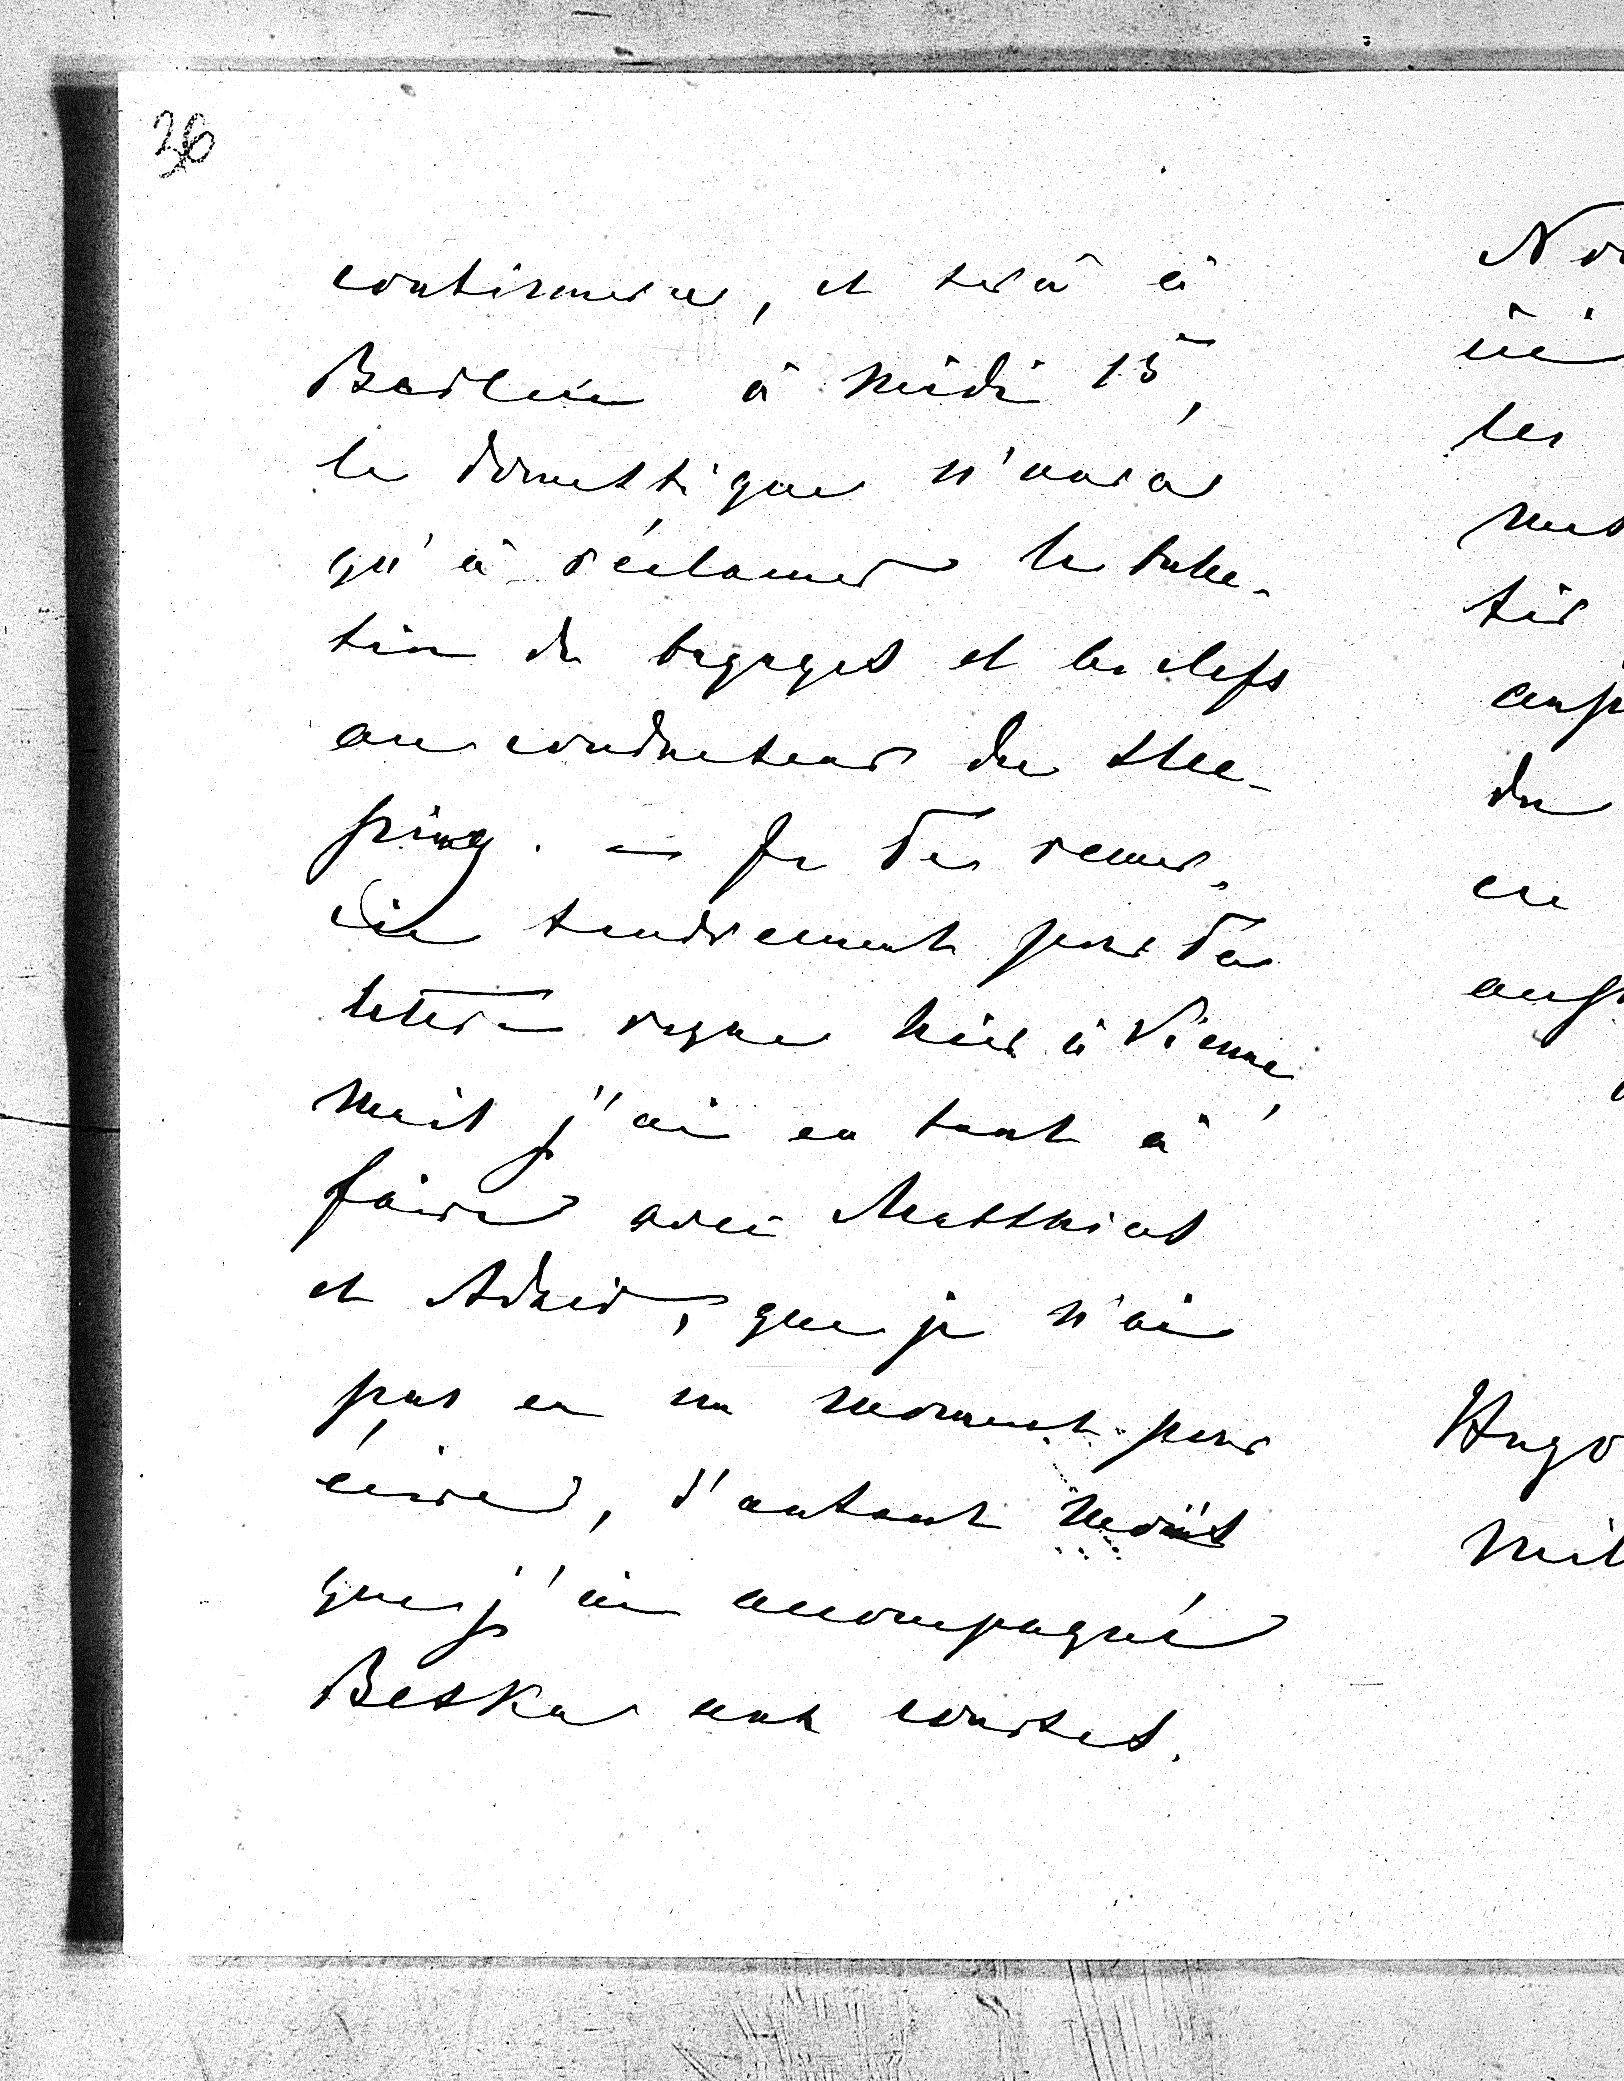 36
continuera, et sera à
Berlin à midi 15,
le domestique n'aura
qu'à réclamer le bulle-
tin de bagages et les clefs
au conducteur du Slee-
ping. — Je Te remer-
cie tendrement pour Ta
lettre reçue hier à Vienne,
mais j'ai eu tant à
faire avec Matthias
et que je n'ai
pas eu un moment pour
écrire, d'autant moins
que j'ai accompagné
Beska aux courses.
les
du
en
Hugo